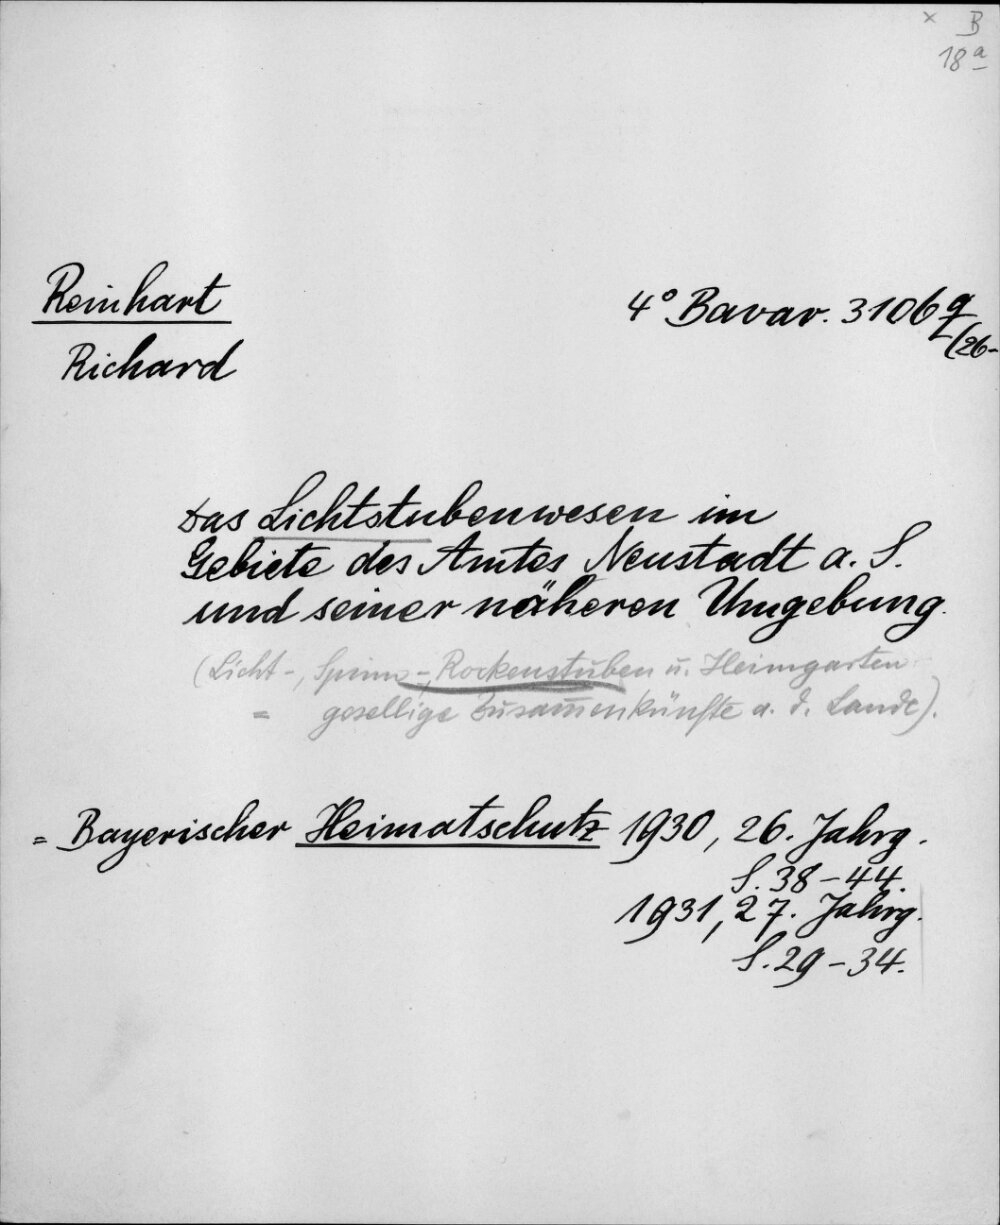 x B
18 a
Reinhart
4° Bavar. 3106 q
(26-
Richard
Das Lichtstubenwesen im
Gebiete des Amtes Neustadt a. S.
und seiner näheren Umgebung.
(Licht-, Spinn-, Rockenstuben u. Heimgarten
= gesellige Zusammenkünfte a. d. Lande).
= Bayerischer Heimatschutz 1930, 26. Jahrg.
S. 38-44.
1931, 27. Jahrg.
S. 29-34.